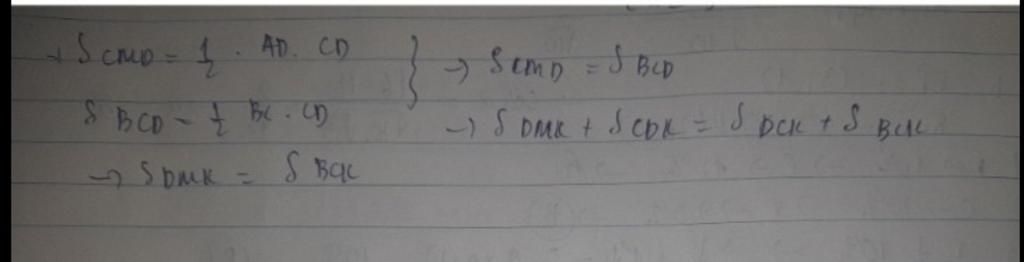 → S CMD = 1/2 . AD . CD } → S CMD = S BCD
S BCD = 1/2 BC . CD → S DMK + S CDK = S DCK + S BCK
→ S DMK = S BCK